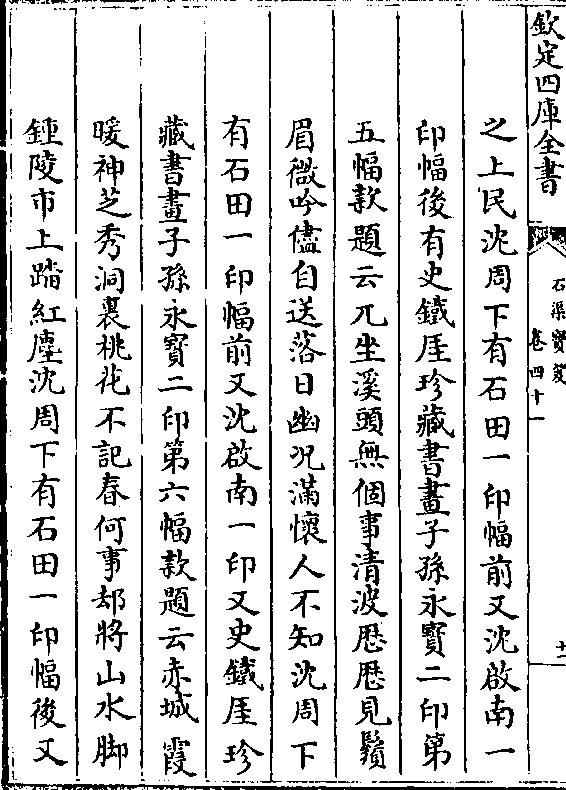 欽定四庫全書
石渠寳笈
卷四十一
十二
之上民沈周下有石田一印幅前又沈啟南一
印幅後有史鐵厓珍藏書畫子孫永寳二印第
五幅款題云兀坐溪頭無個事清波厯厯見鬚
眉微吟儘自送落日幽況滿懷人不知沈周下
有石田一印幅前又沈啟南一印又史鐵厓珍
藏書畫子孫永寳二印第六幅款題云赤城霞
暖神芝秀洞裏桃花不記春何事却將山水脚
鍾陵市上踏紅塵沈周下有石田一印幅後又